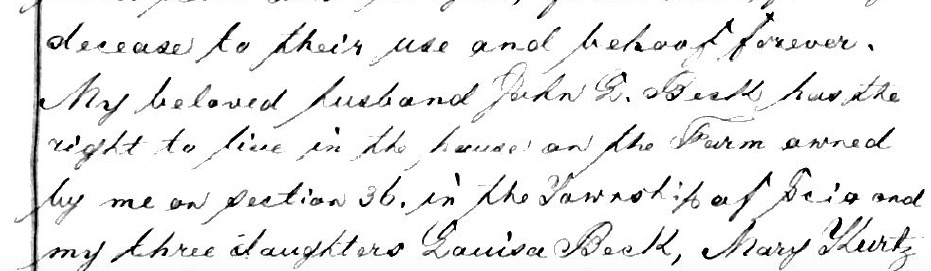 decease to their use and behoof forever.
My beloved husband John G. Beck has the
right to live in the house on the Farm owned
by me on section 36. in the Township of Scio and
my three daughters Louisa Beck, Mary Kurtz